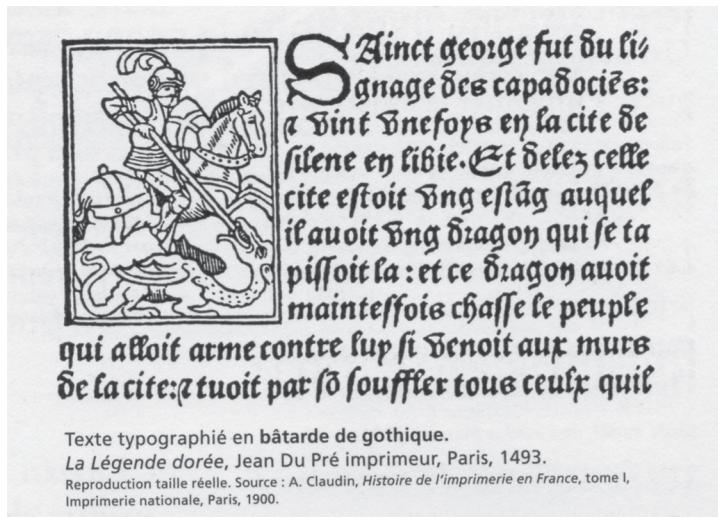 SAinct george fut du li-
gnage des capadociẽs:
⁊ vint vnefoys en la cite de
silene en libie. Et delez celle
cite estoit vng estãg auquel
il auoit vng dragon qui se ta
pissoit la : et ce dragon auoit
maintesfois chasse le peuple
qui alloit arme contre luy si venoit aux murs
de la cite:⁊ tuoit par sõ souffler tous ceulx quil
Texte typographié en bâtarde de gothique.
La Légende dorée, Jean Du Pré imprimeur, Paris, 1493.
Reproduction taille réelle. Source : A. Claudin, Histoire de l'imprimerie en France, tome I,
Imprimerie nationale, Paris, 1900.